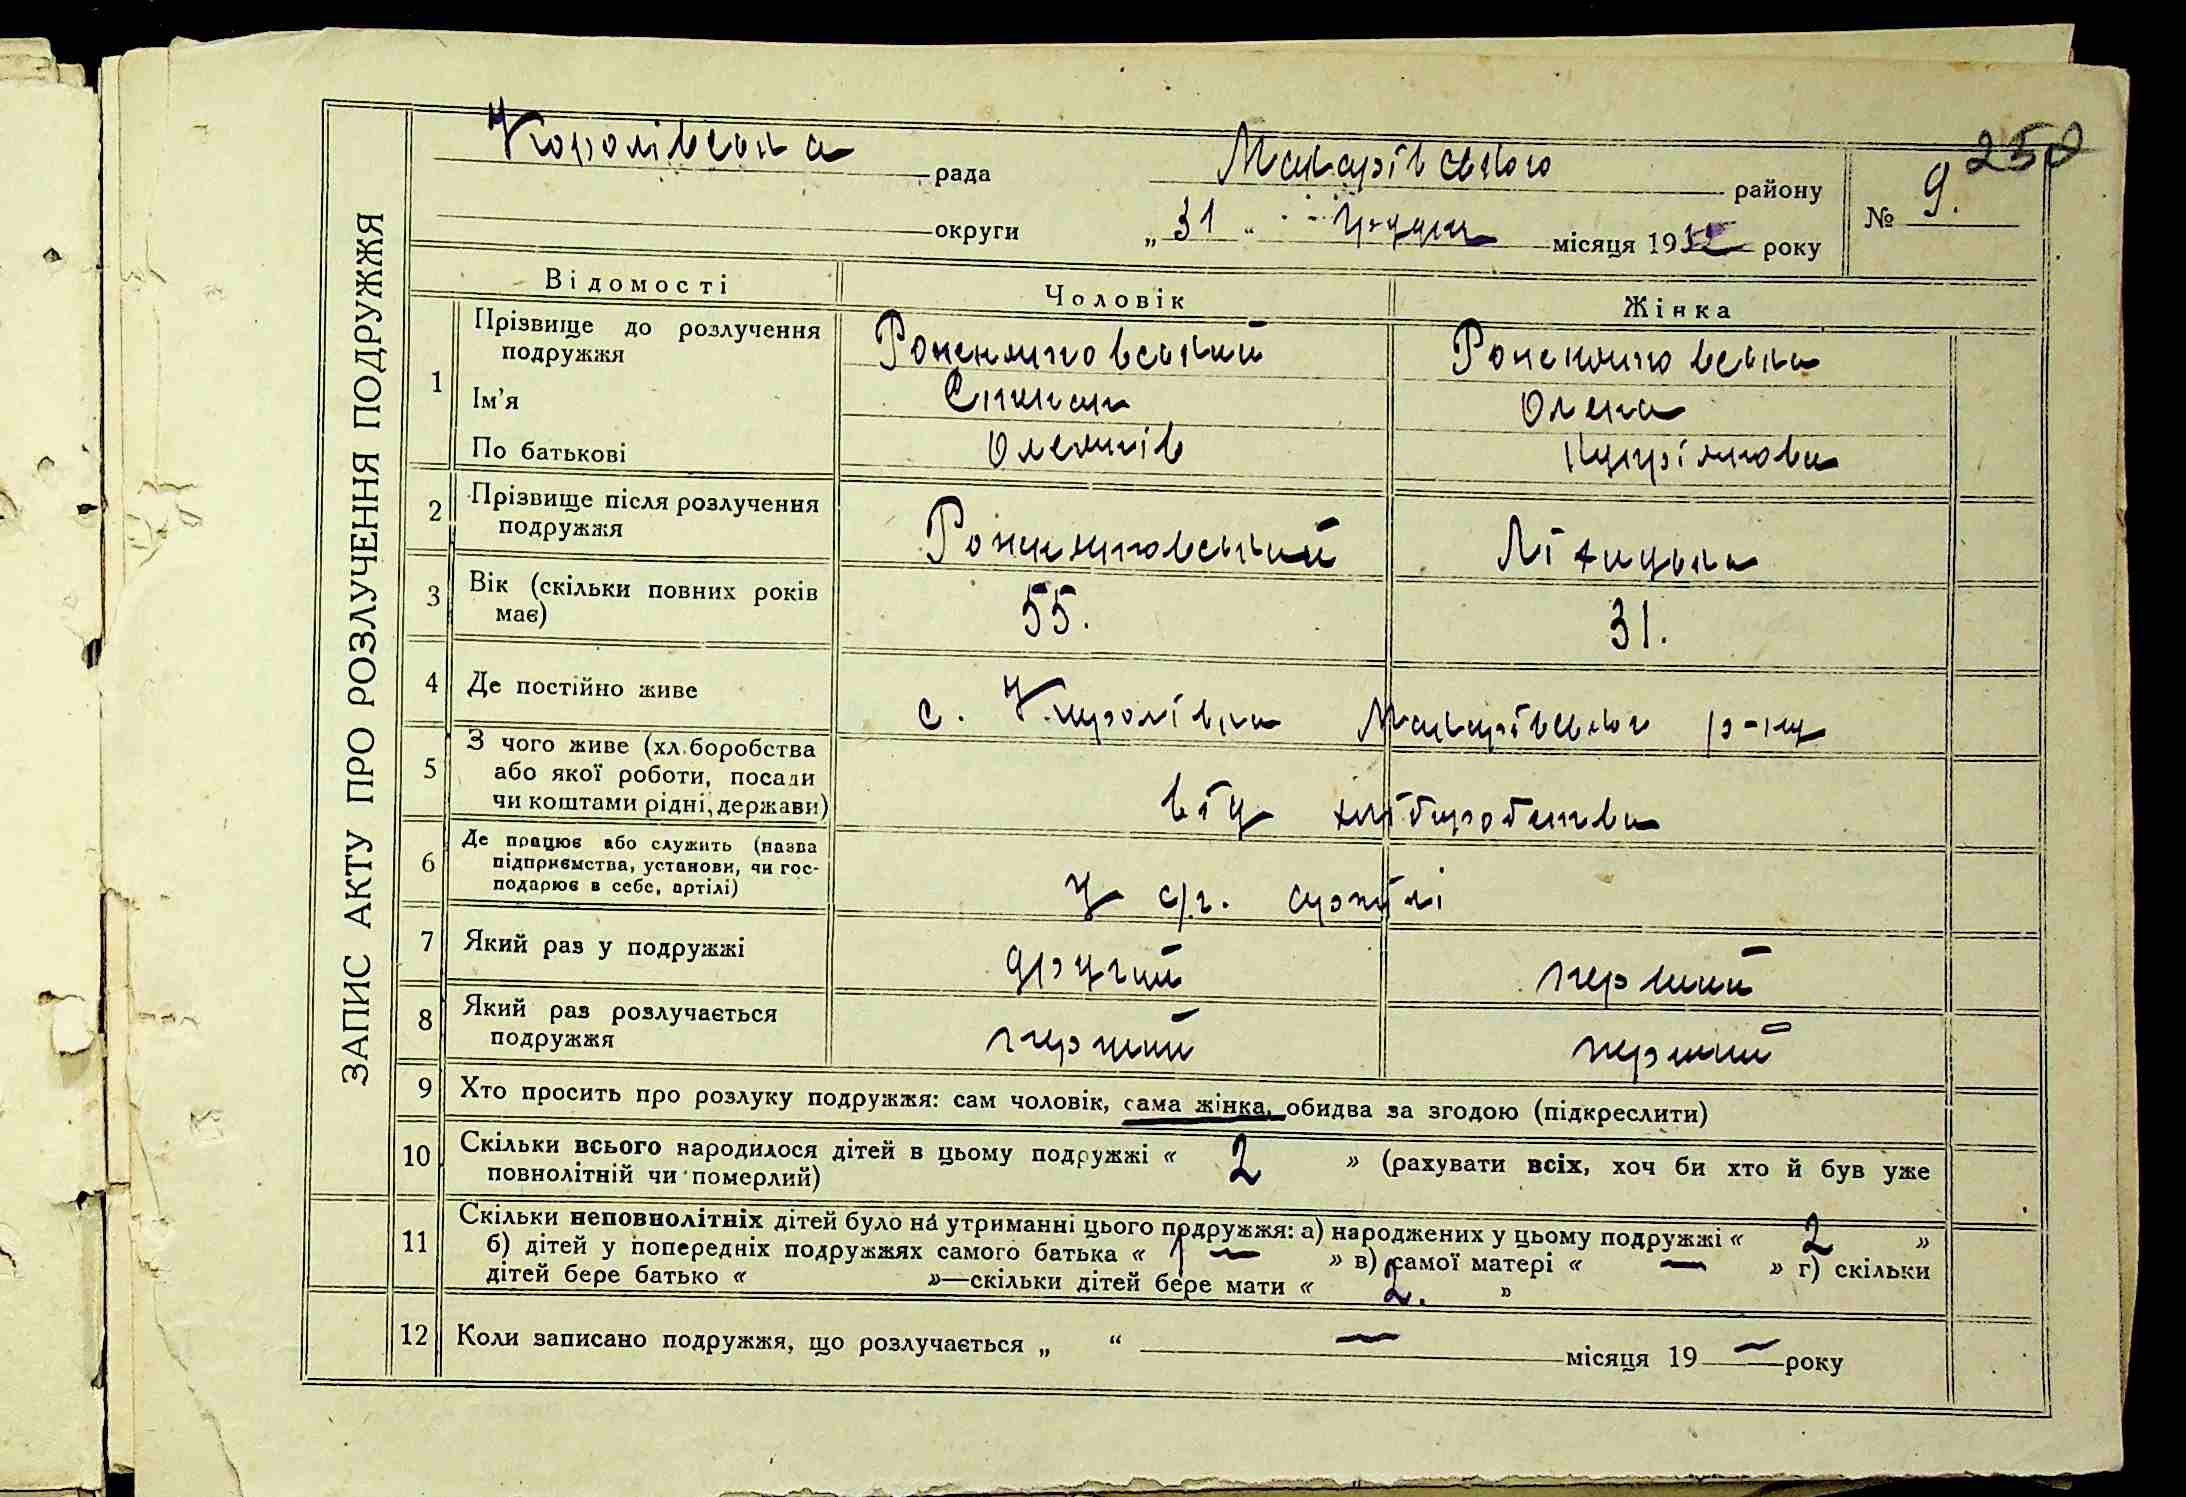 ЗАПИС АКТУ ПРО РОЗЛУЧЕННЯ ПОДРУЖЖЯ
250
Королівська рада Макарівського району № 9.
округи „31“ грудня місяця 19 року
Відомості Чоловік Жінка
1 Прізвище до розлучення
подружжя
Ім'я Степан Олена
По батькові
2 Прізвище після розлучення
подружжя
3 Вік (скільки повних років 55. 31.
має)
4 Де постійно живе с. Королівка Макарівського р-ну
5 З чого живе (хліборобства
або якої роботи, посади
чи коштами рідні, держави) від хліборобства
6 Де працює або служить (назва
підприємства, установи, чи гос-
подарює в себе, артілі) у с/г. артілі
7 Який раз у подружжі другий перший
8 Який раз розлучається
подружжя перший перший
9 Хто просить про розлуку подружжя: сам чоловік, сама жінка, обидва за згодою (підкреслити)
10 Скільки всього народилося дітей в цьому подружжі « 2 » (рахувати всіх, хоч би хто й був уже
повнолітній чи померлий)
11 Скільки неповнолітніх дітей було на утриманні цього подружжя: а) народжених у цьому подружжі « 2 »
б) дітей у попередніх подружжях самого батька « — » в) самої матері « — » г) скільки
дітей бере батько « »—скільки дітей бере мати « 2. »
12 Коли записано подружжя, що розлучається „ “ — місяця 19 — року